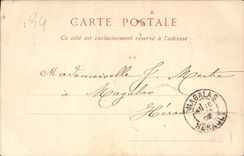 34
CARTE POSTALE
Ce côté est exclusivement réservé à l'adresse
Mademoiselle J. Mestre
à Magalas
Hérault
MAGALAS
HERAULT